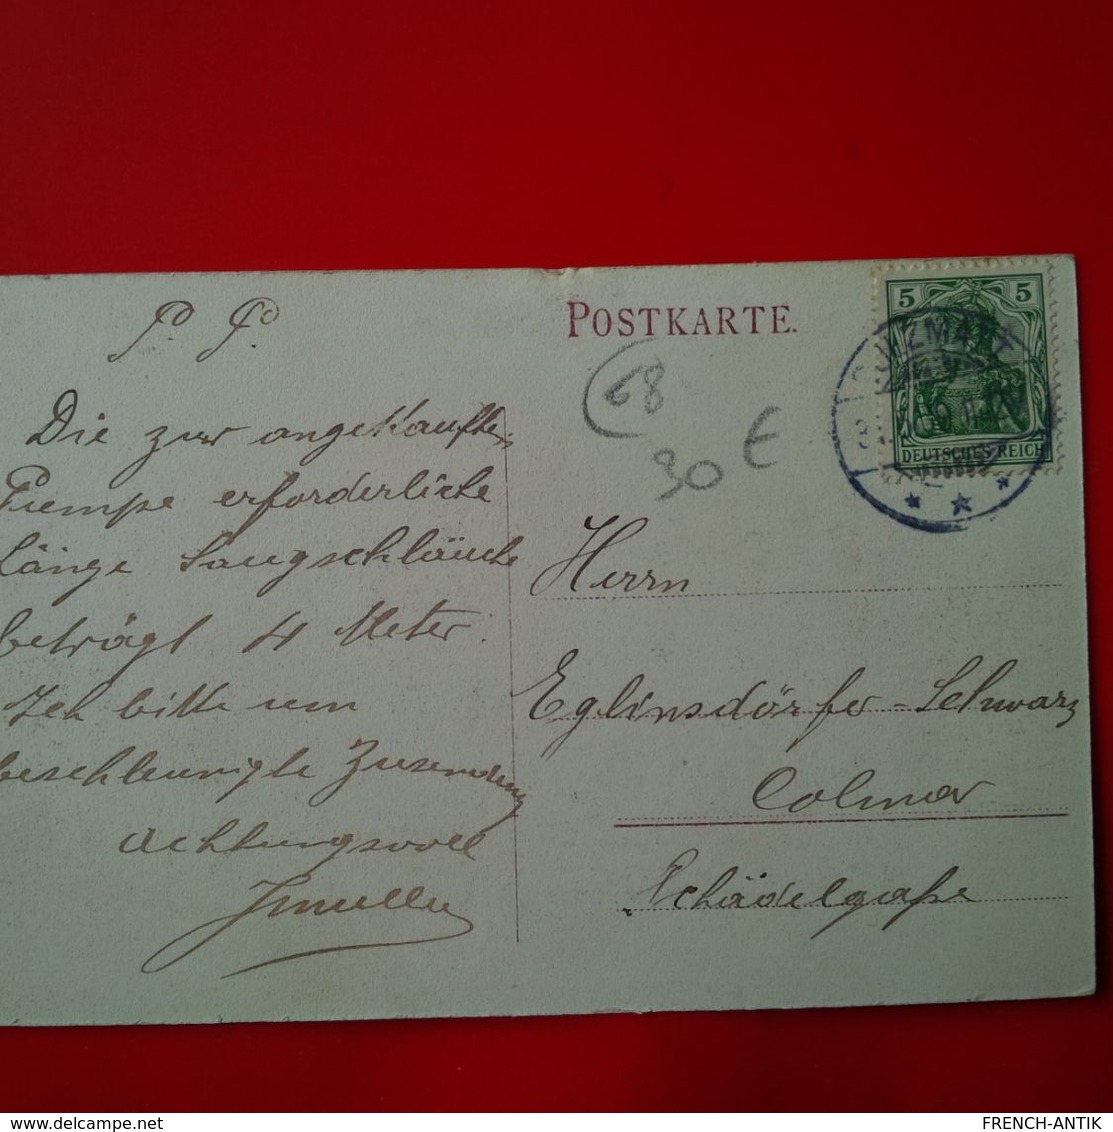 P. P.
Die zur angekaufte
Pumpe erforderliche
Länge Saugschläuche
beträgt 4 Meter.
Ich bitte um
beschleunigte Zusendung
Achtungsvoll
POSTKARTE.
68
30 €
5 5
SULZMATT
DEUTSCHES REICH
Herrn
Eglinsdörfer-Schwarz
Colmar
Schädelgaße
www.delcampe.net
FRENCH-ANTIK